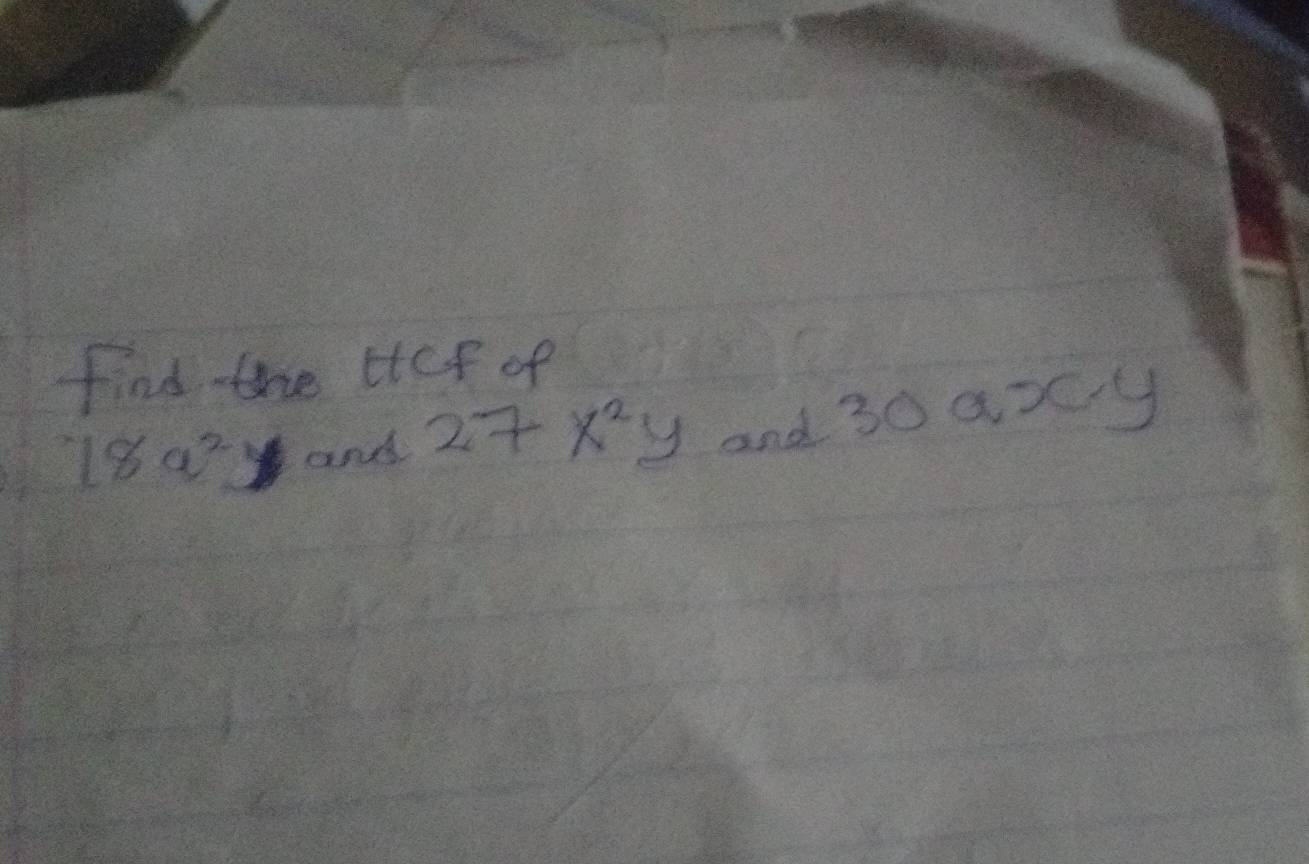 Find the HCF of
18a²y and 27x²y and 30axy